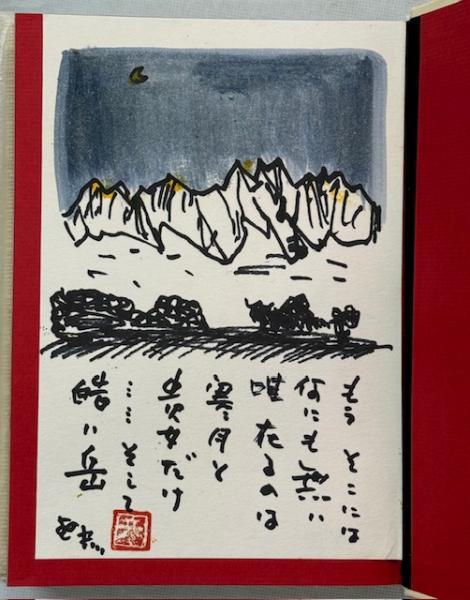 もう そこには
何にも無い
唯 在るのは
寒月と
だけ
…… そして
皓い岳